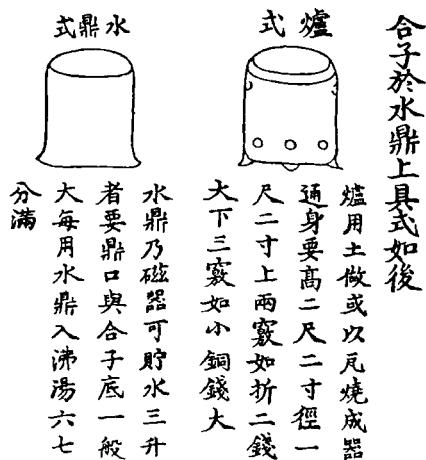 合子於水鼎上具式如後
爐式
爐用土做或以瓦燒成器
通身要高二尺二寸徑一
尺二寸上兩竅如折二錢
大下三竅如小銅錢大
水鼎式
水鼎乃磁器可貯水三升
者要鼎口與合子底一般
大每用水鼎入沸湯六七
分滿